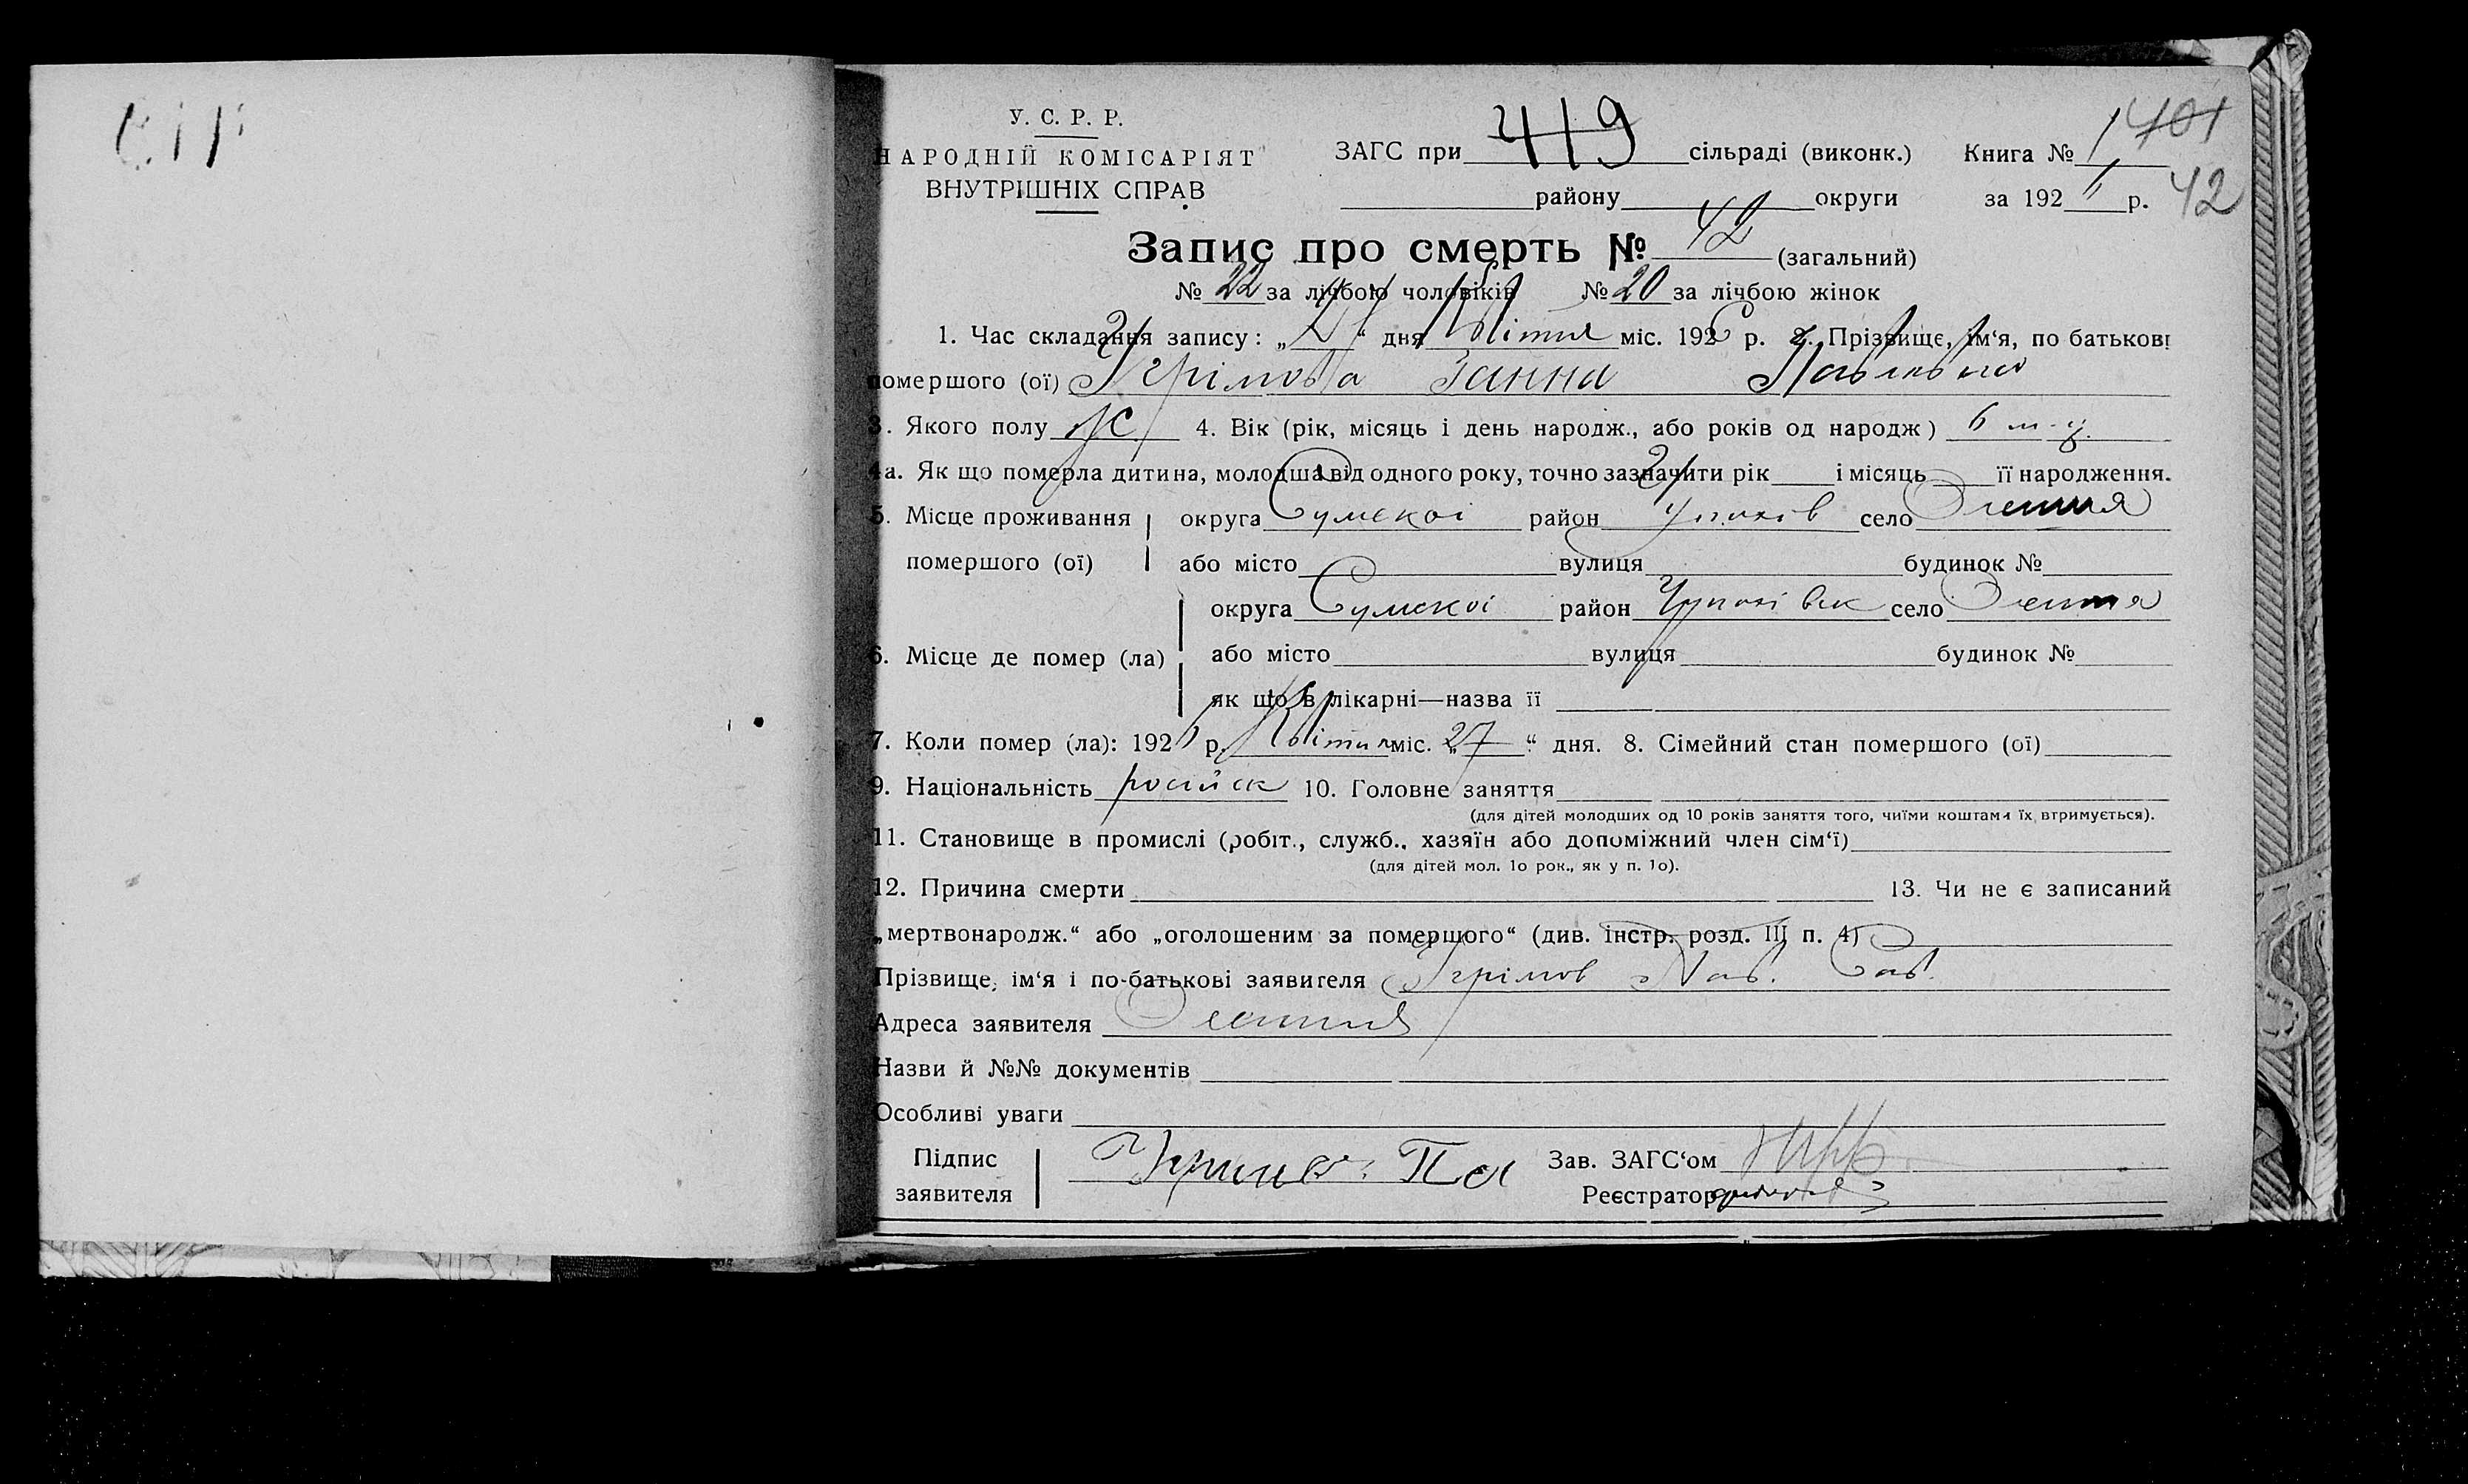 У. С. Р. Р.
НАРОДНІЙ КОМІСАРІЯТ
ВНУТРІШНІХ СПРАВ
ЗАГС при 419 сільраді (виконк.) Книга № 1 401
району округи за 192 р. 42
Запис про смерть № 42 (загальний)
№ 22 за лічбою чоловіків № 20 за лічбою жінок
1. Час складання запису: „ “ дня Квітня міс. 1926 р. 2. Прізвище, ім‘я, по батькові
помершого (ої) Ганна Павловна
3. Якого полу ж 4. Вік (рік, місяць і день народж., або років од народж) 6 м-ц.
4а. Як що померла дитина, молодша від одного року, точно зазначити рік і місяць її народження.
5. Місце проживання округа Сумскоі район село
помершого (ої) або місто вулиця будинок №
округа Сумскоі район село
6. Місце де помер (ла) або місто вулиця будинок №
як що в лікарні—назва її
7. Коли помер (ла): 1926 р. Квітня міс. „27“ дня. 8. Сімейний стан помершого (ої)
9. Національність російск 10. Головне заняття
(для дітей молодших од 10 років заняття того, чиїми коштами їх втримується).
11. Становище в промислі (робіт., служб., хазяїн або допоміжний член сім‘ї)
(для дітей мол. 1о рок., як у п. 1о).
12. Причина смерти 13. Чи не є записаний
„мертвонародж.“ або „оголошеним за померщого“ (див. інстр. розд. III п. 4)
Прізвище, ім‘я і по-батькові заявителя Пав. Сав.
Адреса заявителя
Назви й №№ документів
Особливі уваги
Підпис Зав. ЗАГС‘ом
заявителя Реєстратор